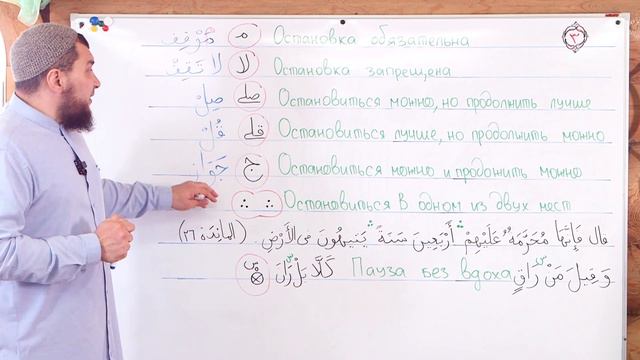 ٣
م Остановка обязательна
لا تَقِفْ لا Остановка запрещена
صِلْ صلے Остановиться можно, но продолжить лучше
قُلْ قلے Остановиться лучше, но продолжить можно
جَوَاز ج Остановиться можно и продожить можно
Остановиться в одном из двух мест
قال فَإِنَّهَا مُحَرَّمَةٌ عَلَيْهِمْ ۛ أَرْبَعِينَ سَنَةً ۛ يَتِيهُونَ فِي الْأَرْضِ (المائدة ٢٦)
وَقِيلَ مَنْ س رَاقٍ Пауза без вдоха كَلَّا بَلْ س رَانَ س